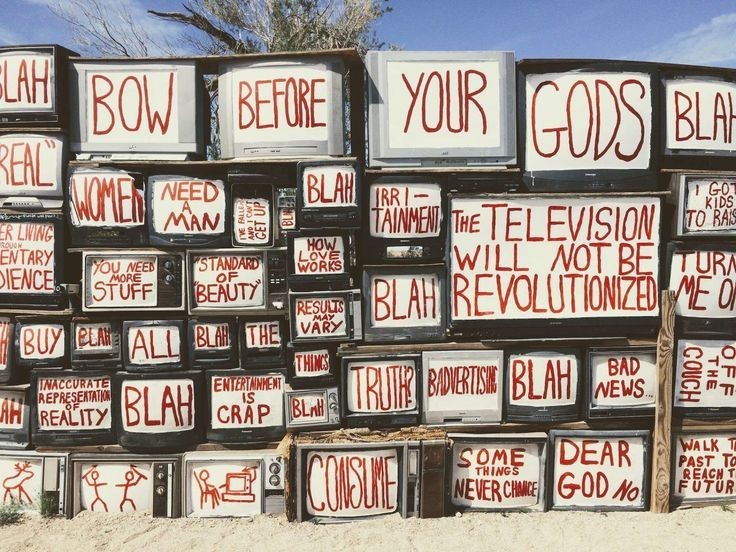 BLAH
BOW
BEFORE
YOUR
GODS
BLAH
REAL"
WOMEN
NEED
A MAN
GET UP
BLAH
IRRI-
TAINMENT
THE TELEVISION
WILL NOT BE
REVOLUTIONIZED
I GOT
KIDS
TO RAISE
ER LIVING
THROUGH
ENTARY
DIENCE
"YOU NEED
MORE
STUFF"
"STANDARD
OF
"BEAUTY"
HOW
LOVE
WORKS
BLAH
TURN
ME ON
RESULTS
MAY
VARY
BUY
BLAH
ALL
BLAH
THE
THINGS
INACCURATE
REPRESENTATION
OF
REALITY
BLAH
ENTERTAINMENT
IS
CRAP
BLAH
TRUTH?
BADVERTISING
BLAH
BAD
NEWS...
OFF
THE
COUCH
AH
CONSUME
SOME
THINGS
NEVER CHANGE
DEAR
GOD NO
WALK T
PAST TO
REACH T
FUTUR